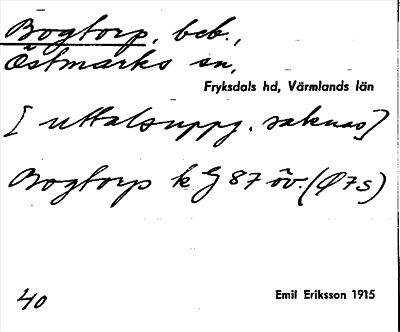 Bogtorp, beb.,
Östmarks sn,
Fryksdals hd, Värmlands län
[uttalsuppg. saknas]
Bogtorp k G 87 öv. (Ø7s)
40
Emil Eriksson 1915